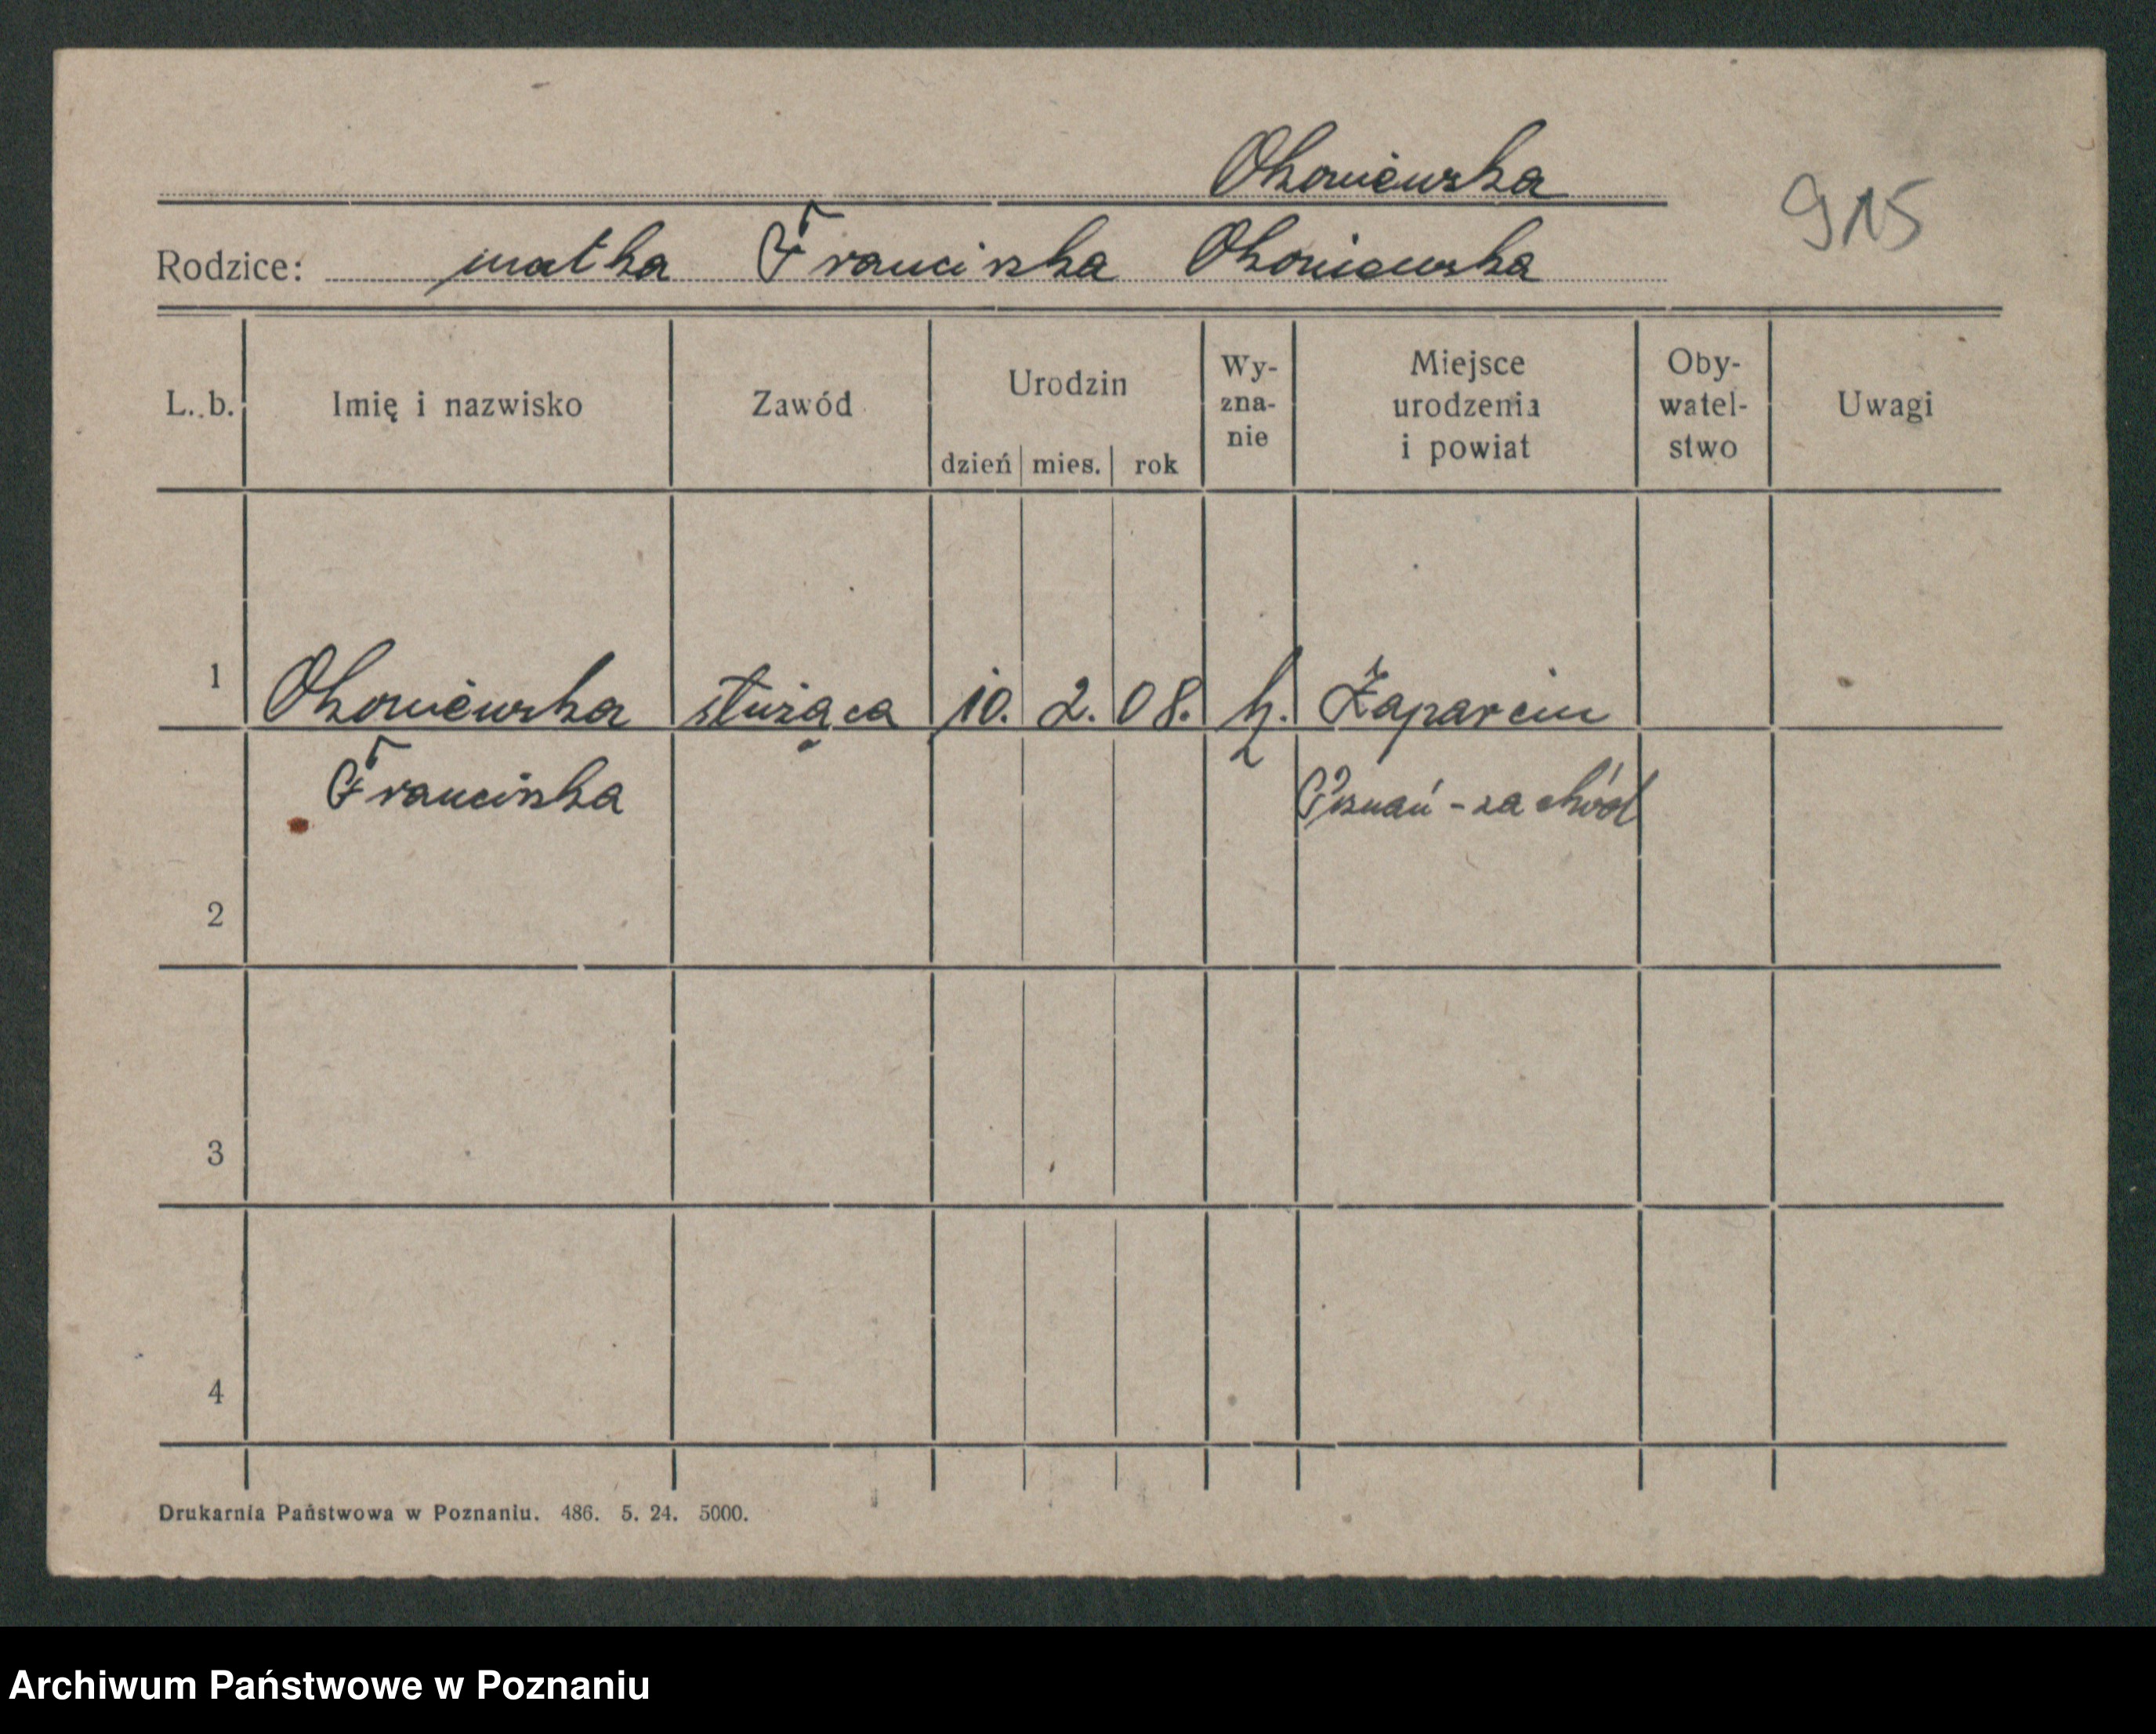 Okoniewska
915
Rodzice: matka Franciszka Okoniewska
L. b. Imię i nazwisko Zawód Urodzin dzień mies. rok Wy-zna-nie Miejsce urodzenia i powiat Oby-watel-stwo Uwagi
1 Okoniewska służąca 10. 2. 08. k. Zaparcin
Franciszka Poznań - zachód
2
3
4
Drukarnia Państwowa w Poznaniu. 486. 5. 24. 5000.
Archiwum Państwowe w Poznaniu